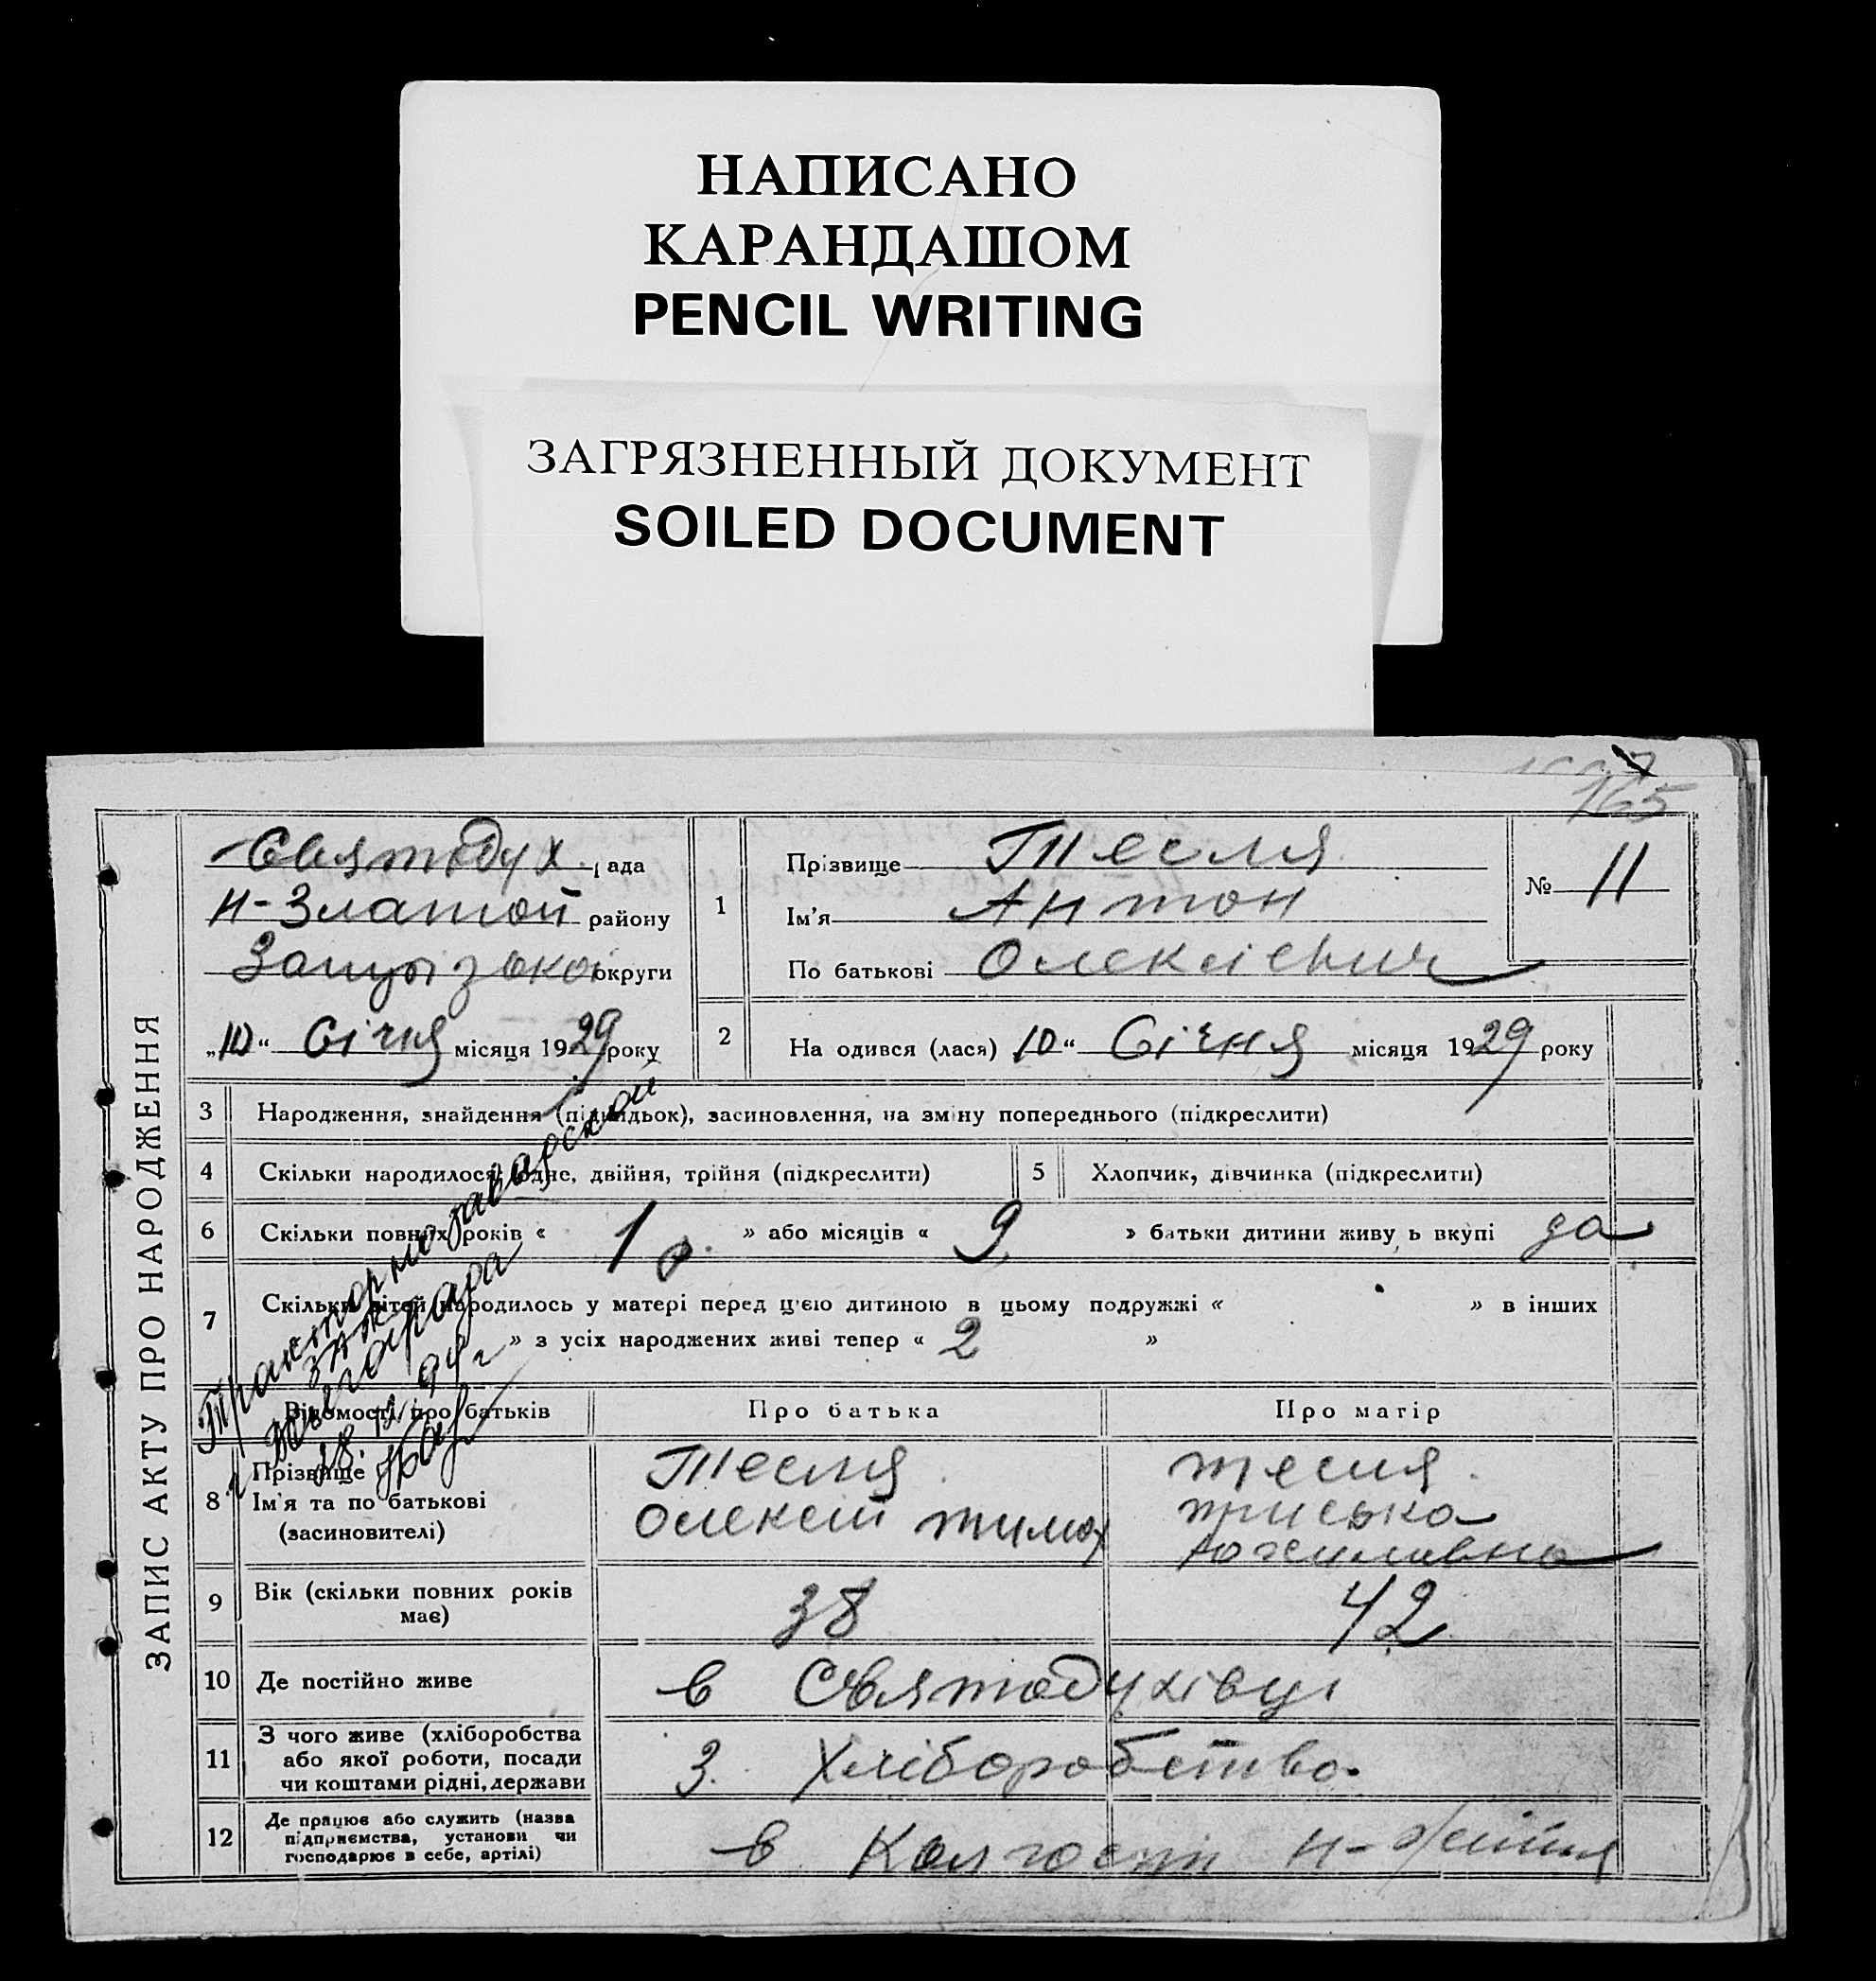 НАПИСАНО
КАРАНДАШОМ
PENCIL WRITING
ЗАГРЯЗНЕННЫЙ ДОКУМЕНТ
SOILED DOCUMENT
165
ЗАПИС АКТУ ПРО НАРОДЖЕННЯ
Святодух. рада
Н-Златой району
округи
„10“ Січня місяця 1929 року
1
Прізвище Тесля
Ім'я Антон
По батькові Олексієвич
№ 11
2 На одився (лася) 10“ Січня місяця 1929 року
3 Народження, знайдення (підкидьок), засиновлення, на зміну попереднього (підкреслити)
4 Скільки народилося: одне, двійня, трійня (підкреслити)
5 Хлопчик, дівчинка (підкреслити)
6 Скільки повних років « 1 р. » або місяців « 9 » батьки дитини живу ь вкупі да
7 Скільки дітей народилось у матері перед ц'єю дитиною в цьому подружжі « » в інших
» з усіх народжених живі тепер « 2 »
Відомості про батьків
Про батька
Про матір
8 Прізвище
Ім'я та по батькові
(засиновителі)
Тесля
Олексій Тимох
Тесля.
Пріська
9 Вік (скільки повних років
має)
38
42
10 Де постійно живе
в Святодухівці
11 З чого живе (хліборобства
або якої роботи, посади
чи коштами рідні, держави
З. Хліборобство.
12 Де працює або служить (назва
підприємства, установи чи
господарює в себе, артілі)
в Колгоспі